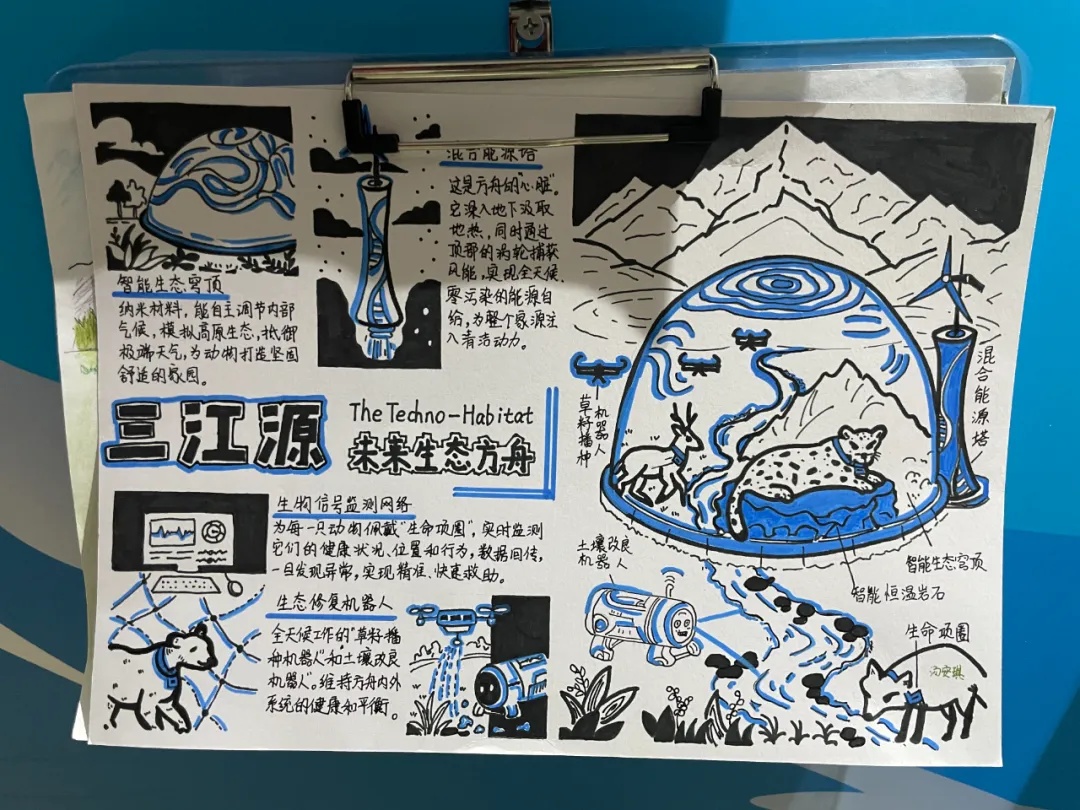 智能生态穹顶
纳米材料，能自主调节内部
气候，模拟高原生态，抵御
极端天气，为动物打造坚固
舒适的家园。
混合能源塔
这是方舟的"心脏"。
它深入地下汲取
地热，同时通过
顶部的涡轮捕获
风能，实现全天候、
零污染的能源自
给，为整个家源注
入清洁动力。
三江源
The Techno-Habitat
未来生态方舟
生物信号监测网络
为每一只动物佩戴"生命项圈"，实时监测
它们的健康状况、位置和行为，数据回传，
一旦发现异常，实现精准、快速救助。
生态修复机器人
全天候工作的"草籽播
种机器人"和"土壤改良
机器人"。维持方舟内外
系统的健康和平衡。
草籽播种
机器人
混合能源塔
土壤改良
机器人
智能生态穹顶
智能恒温岩石
生命项圈